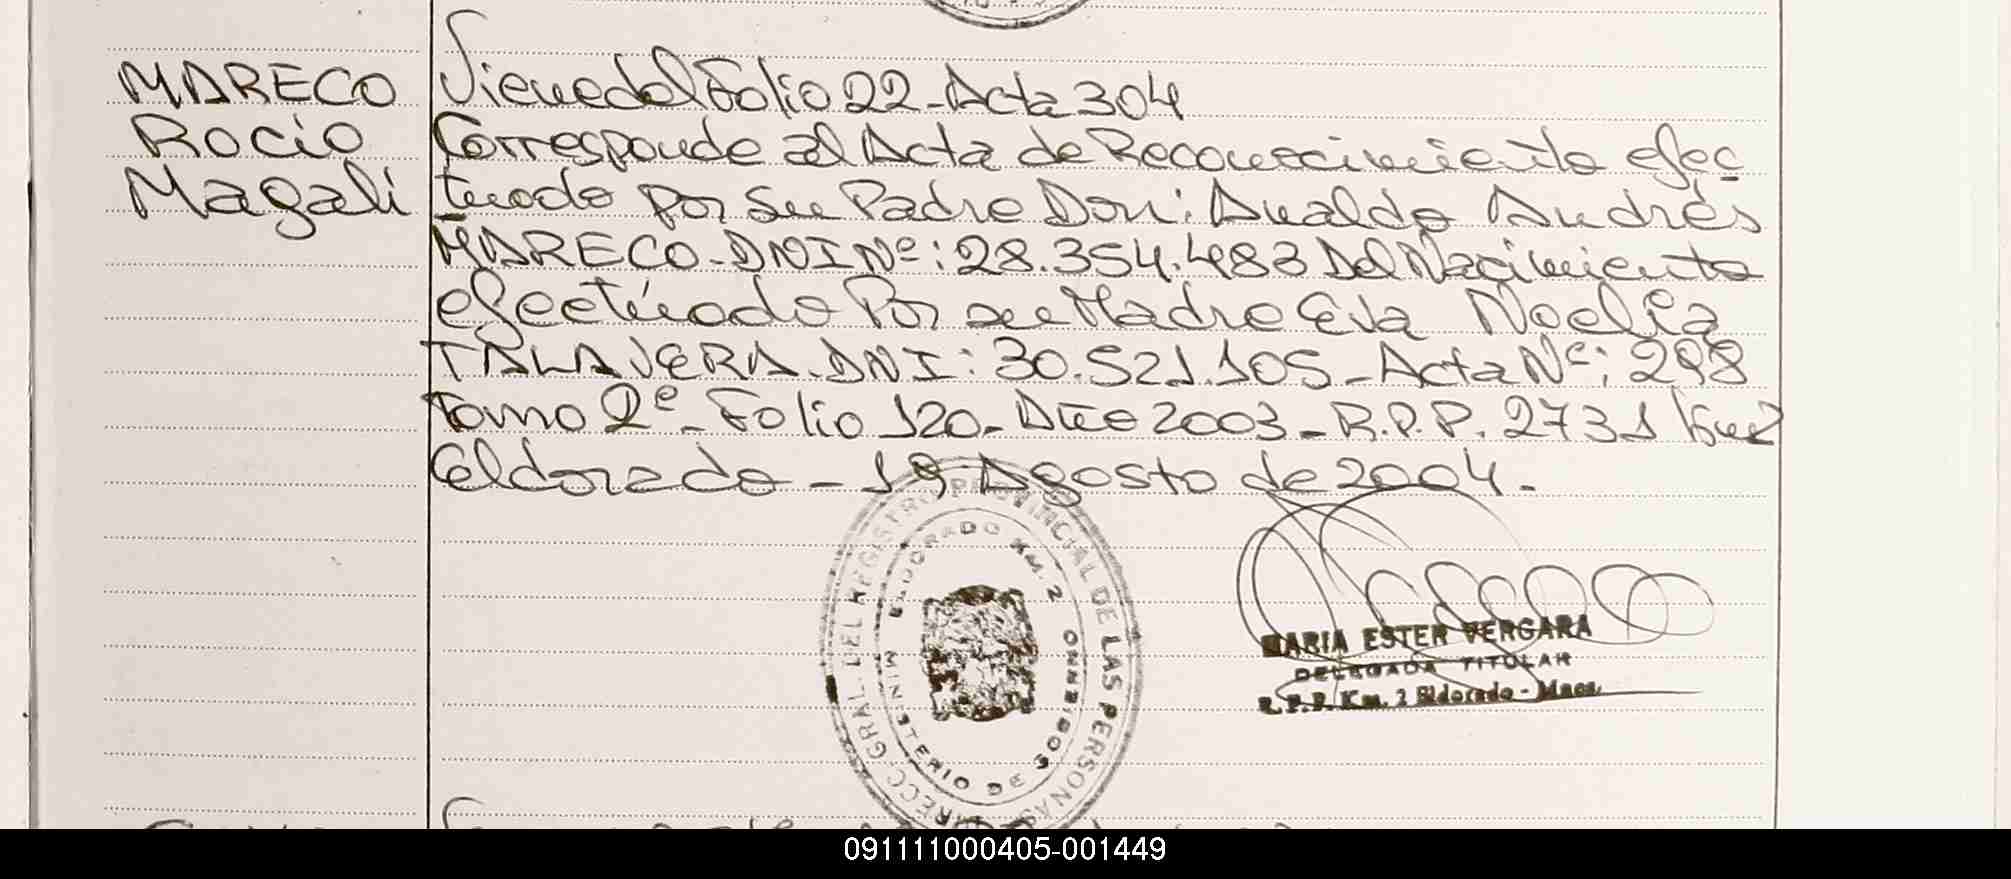 MARECO
Rocio
Magali
Viene del Folio 22 - Acta 304
Corresponde al Acta de Reconocimiento efec
tuado por su Padre Don: Analdo Andrés
MARECO - DNI Nº: 28.354.483 Del Nacimiento
efectuado Por su Madre Eva Noelia
TALAVERA. DNI: 30.521.105 - Acta Nº: 298
Tomo 2º - Folio 120 - Año 2003 - R.P.P. 2731 Km2
Eldorado - 19 Agosto de 2004.
GRAL. DEL REGISTRO PROVINCIAL DE LAS PERSONAS
ELDORADO KM. 2
MINISTERIO DE GOBIERNO
MARIA ESTER VERGARA
DELEGADA TITULAR
R.P.P. Km. 2 Eldorado - Mnes.
091111000405-001449